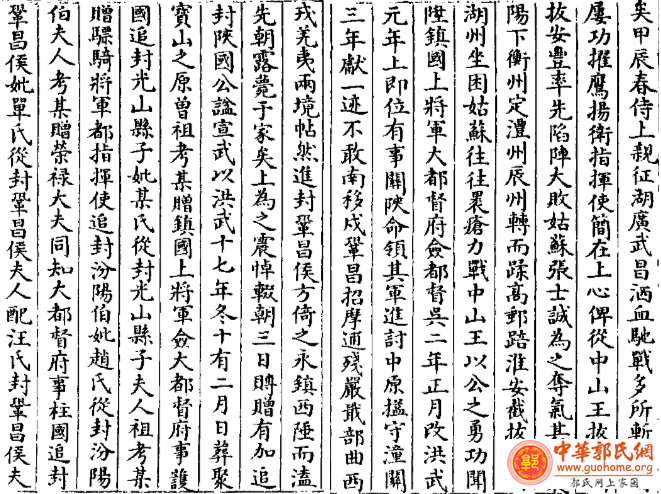 矣甲辰春侍上親征湖廣武昌洒血馳戰多所斬
屢功擢鷹揚衛指揮使簡在上心俾從中山王拔
拔安豐率先陷陣大敗姑蘇張士誠為之奪氣其
陽下衡州定澧州辰州轉而蹂高郵踣淮安截拔
湖州坐困姑蘇往往褁瘡力戰中山王以公之勇功聞
陞鎮國上將軍大都督府僉都督吳二年正月改洪武
元年上即位有事關陝命領其軍進討中原搤守潼關
三年獻一迹不敢南移戍鞏昌招摩逋殘嚴戢部曲西
戎羌夷兩境帖然進封鞏昌侯方倚之永鎮西陲而溘
先朝露薨于家矣上為之震悼輟朝三日賻贈有加追
封陝國公諡宣武以洪武十七年冬十有二月日葬聚
寶山之原曾祖考某贈鎮國上將軍僉大都督府事護
國追封光山縣子妣某氏從封光山縣子夫人祖考某
贈驃騎將軍都指揮使追封汾陽伯妣趙氏從封汾陽
伯夫人考某贈榮祿大夫同知大都督府事柱國追封
鞏昌侯妣單氏從封鞏昌侯夫人配汪氏封鞏昌侯夫
中華郭氏網
www.guohome.org
郭氏网上家園